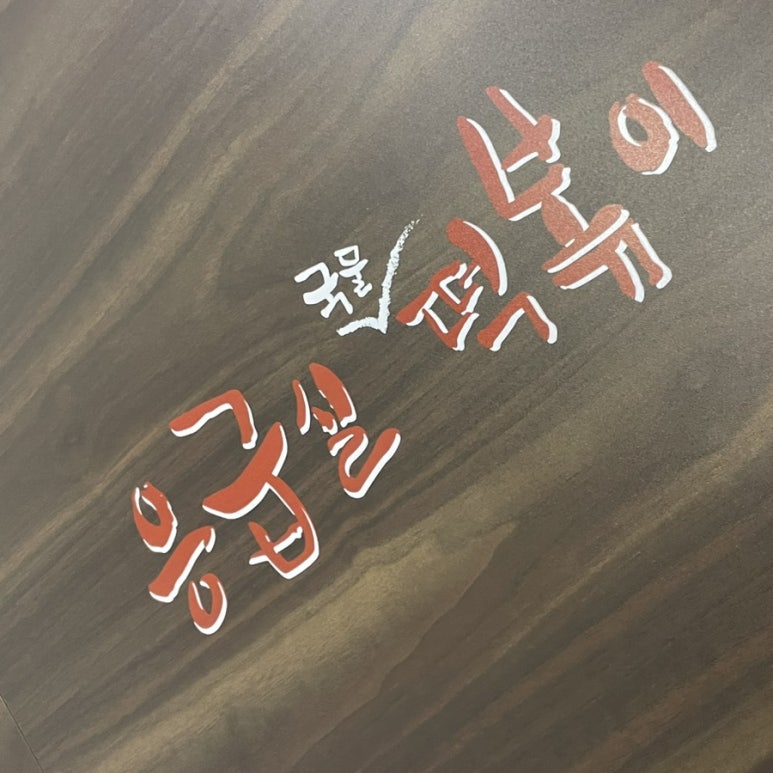 응급실 국물 떡볶이